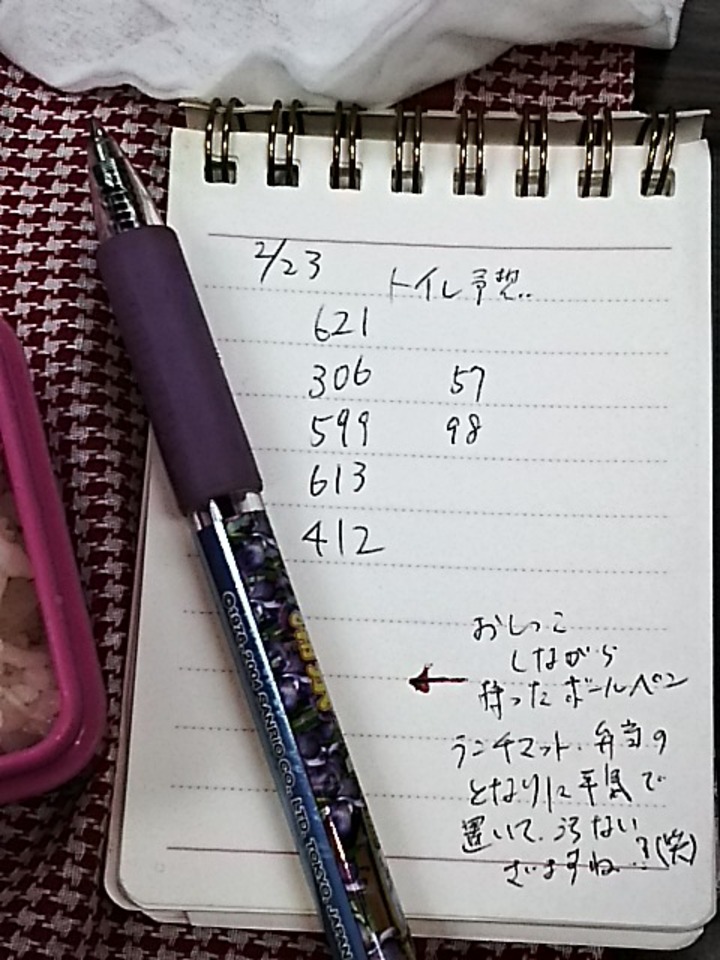 2/23
トイレ予想..
621
306 57
599 98
613
412
おしっこ
しながら
持ったボールペン
ランチマット、弁当の
となりに平気で
置いて、汚ない
ざますね..?(笑)
©1976, 2004 SANRIO CO., LTD. TOKYO, JAPAN